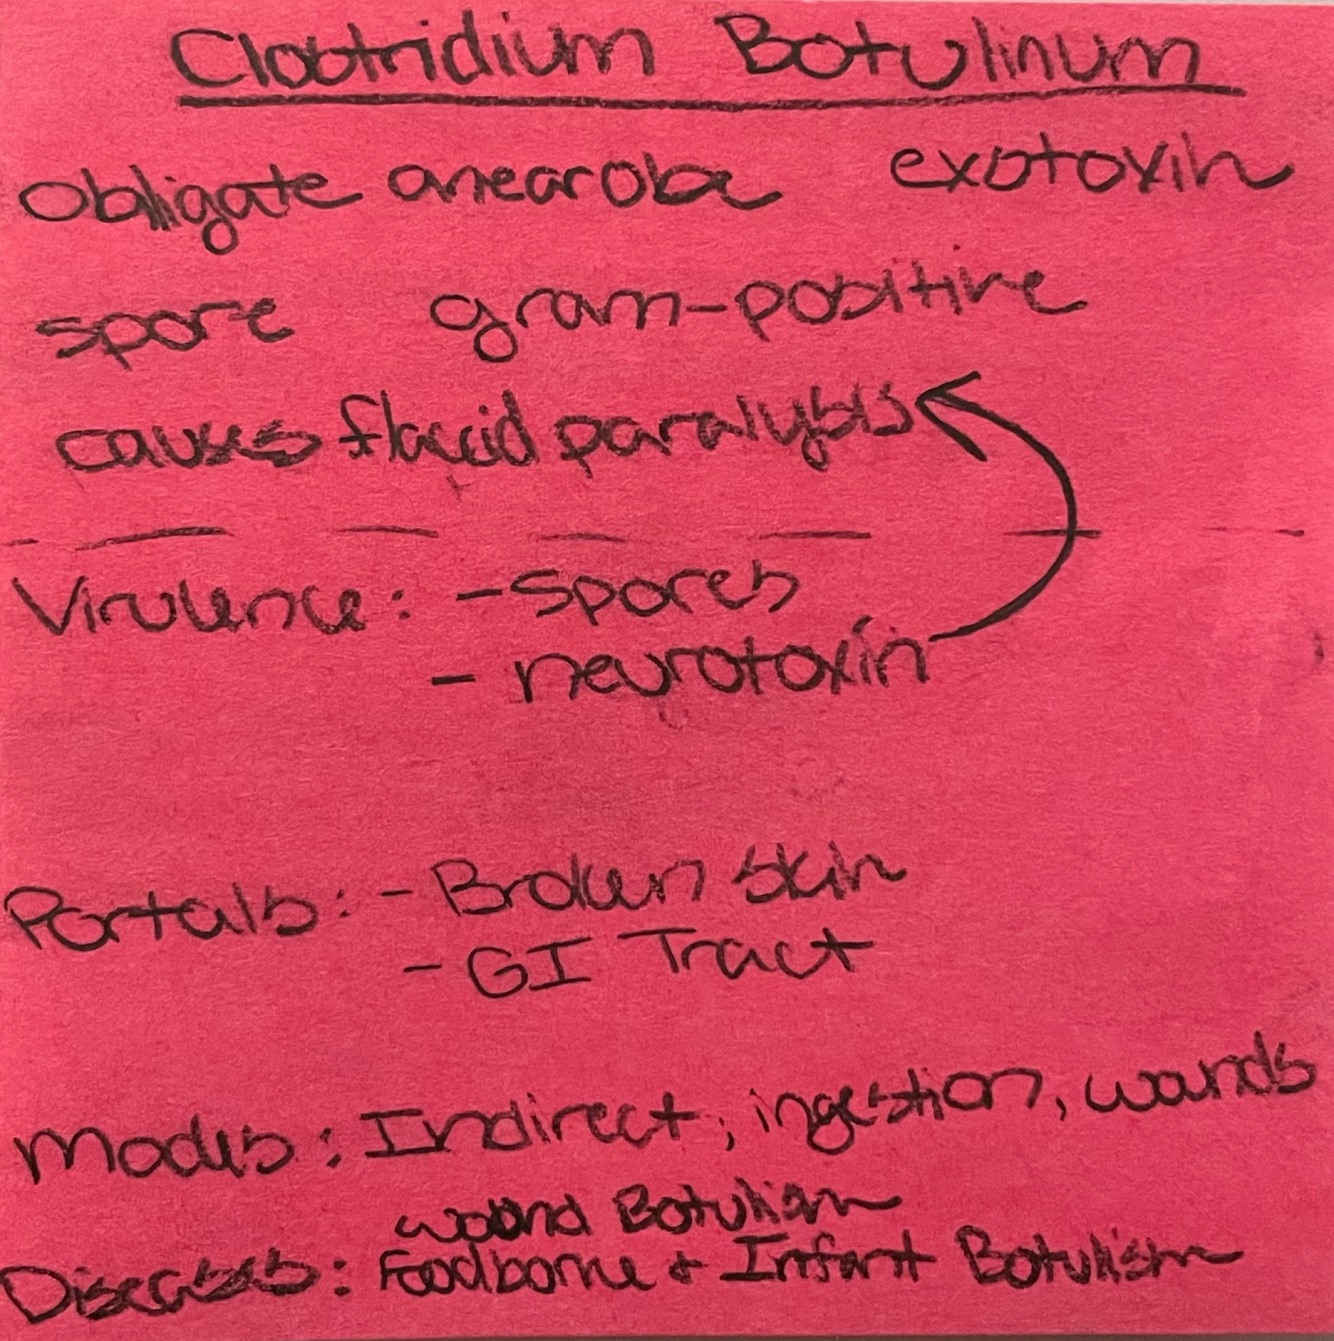 Clostridium Botulinum
Obligate anearobe exotoxin
spore gram-positive
causes flaccid paralysis
Virulence: - Spores
- neurotoxin
Portals: - Broken Skin
- GI Tract
Modes: Indirect, ingestion, wounds
wound Botulism
Diseases: Foodborne + Infant Botulism